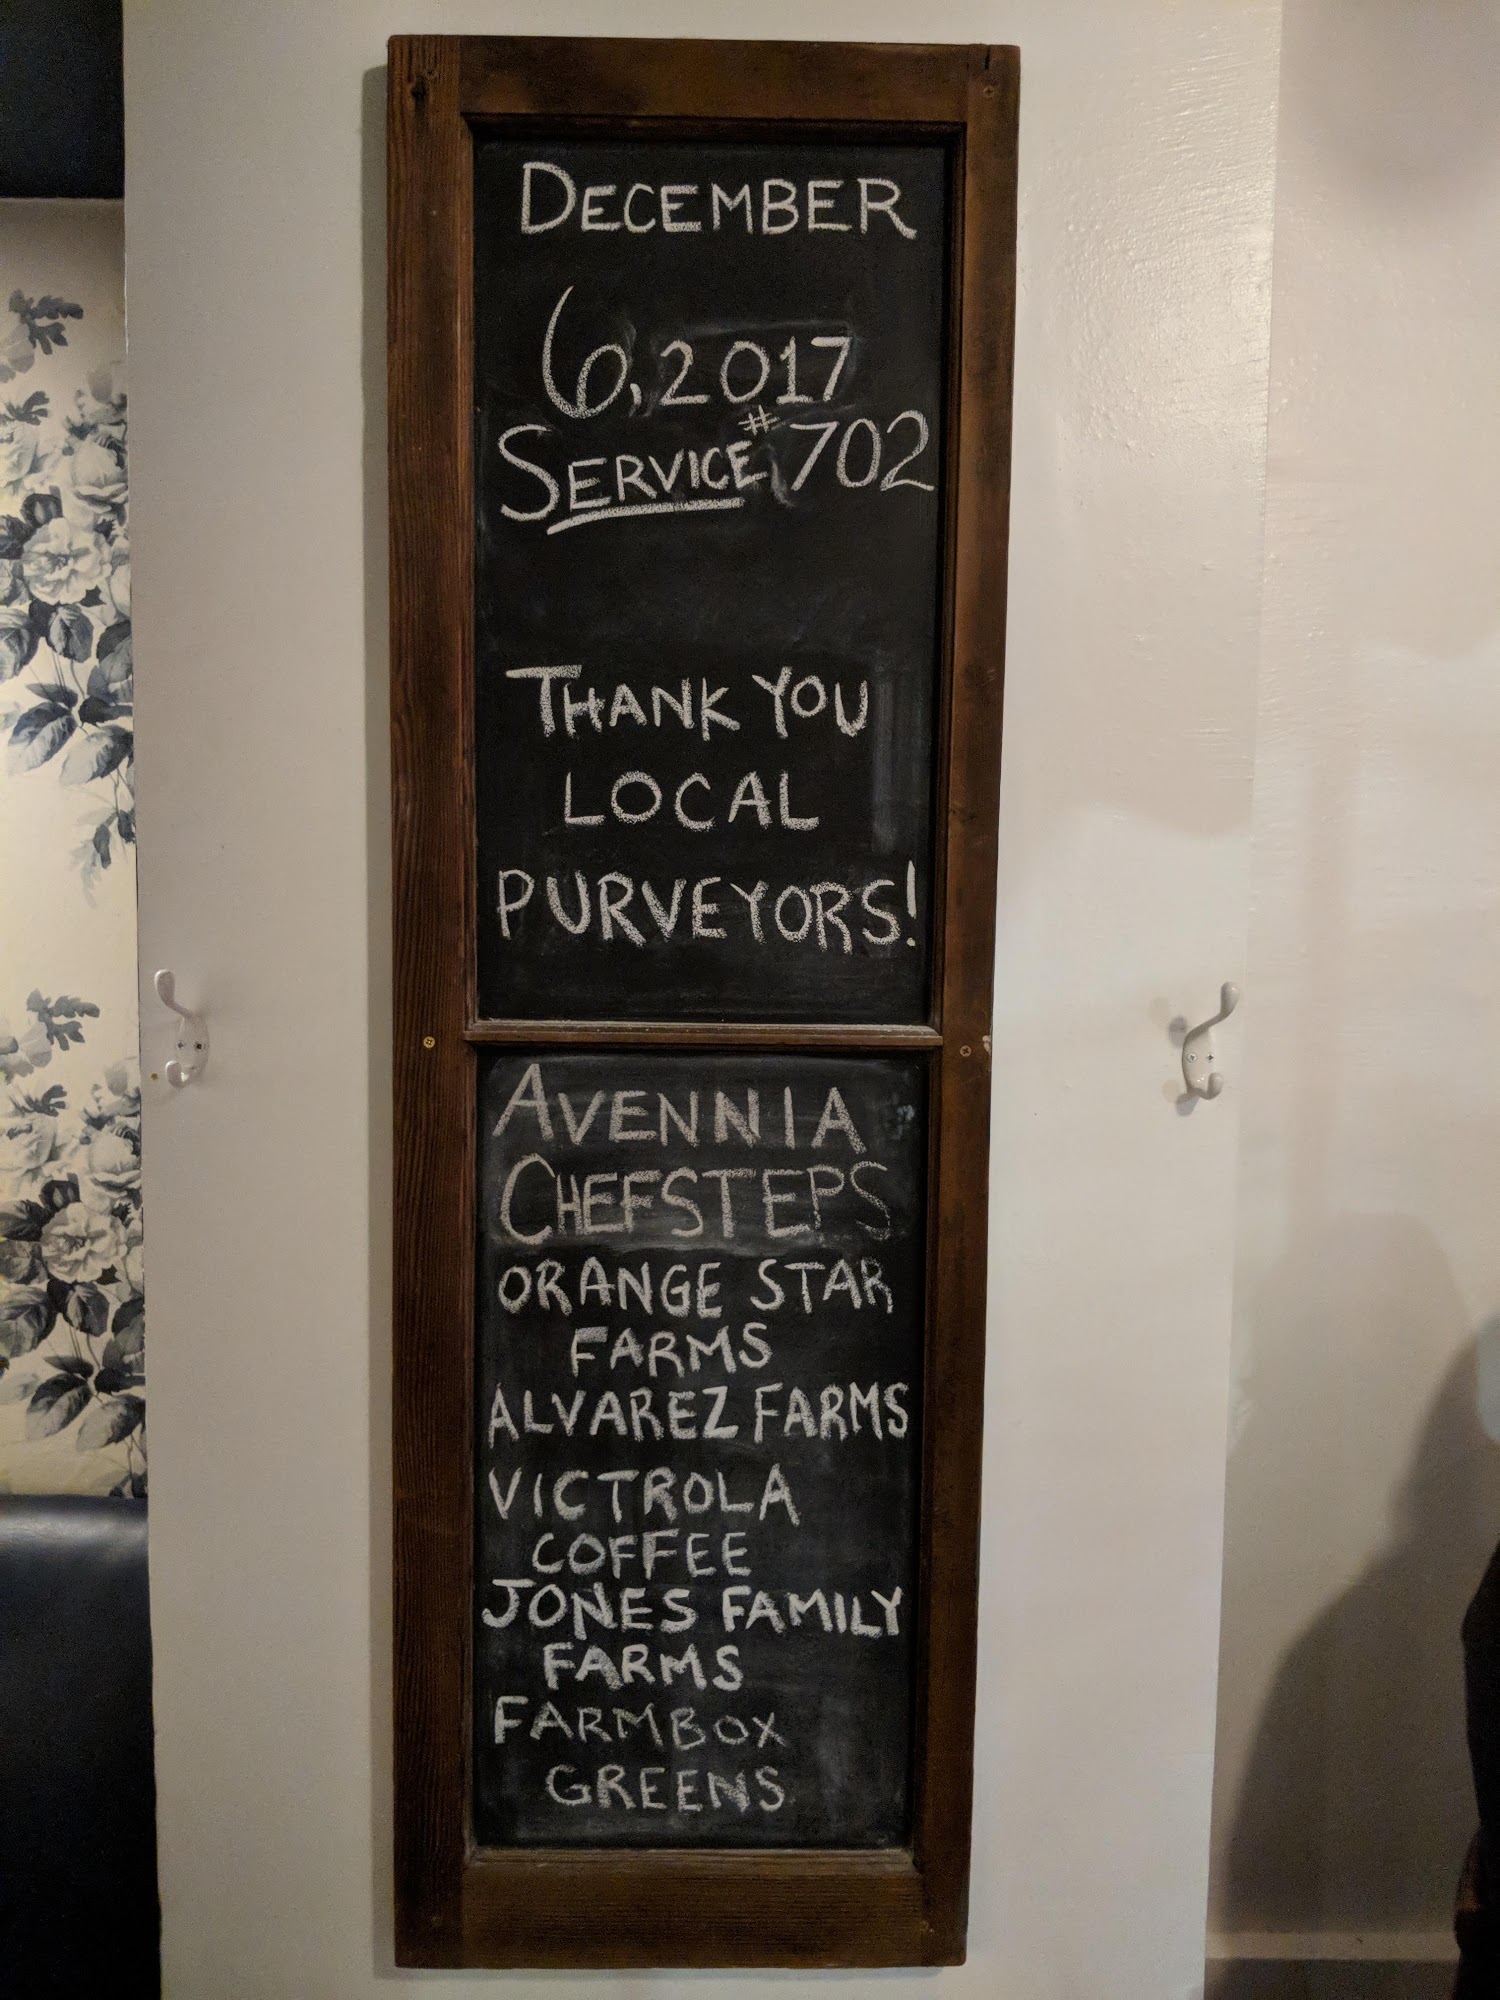 DECEMBER
6, 2017
SERVICE # 702
THANK YOU
LOCAL
PURVEYORS!
AVENNIA
CHEFSTEPS
ORANGE STAR
FARMS
ALVAREZ FARMS
VICTROLA
COFFEE
JONES FAMILY
FARMS
FARMBOX
GREENS